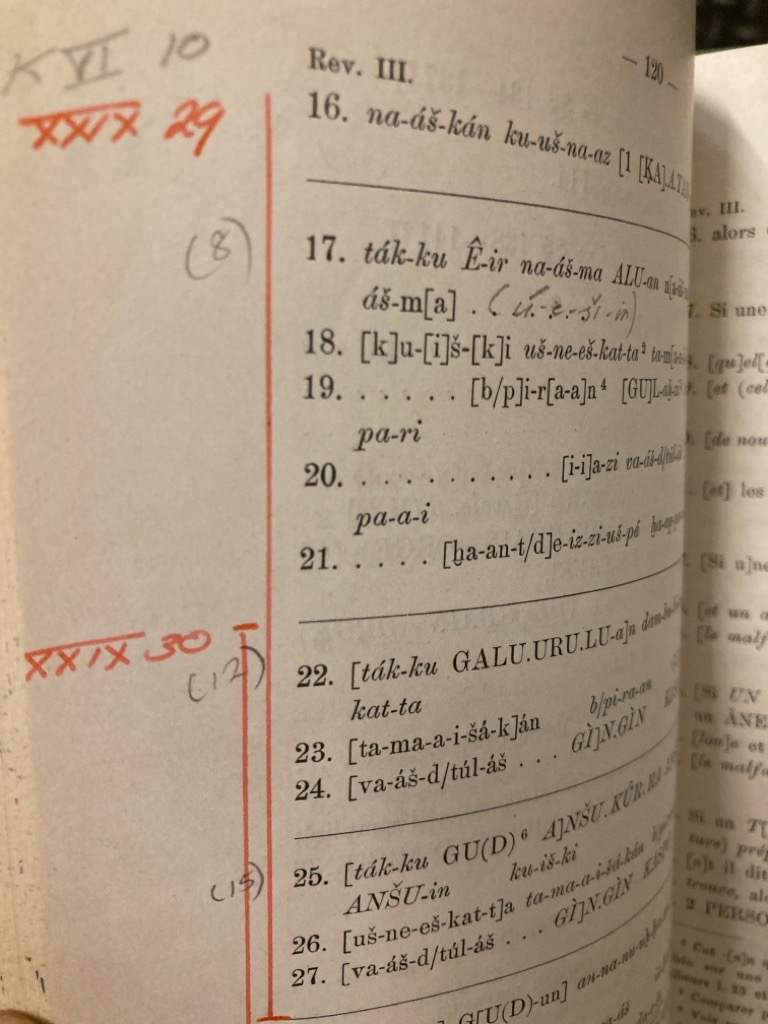 K VI 10
Rev. III.
— 120 —
XXIX 29
16. na-áš-kán ku-uš-na-az [1 [ḲA].A.TA
(8)
17. ták-ku Ê-ir na-áš-ma ALU-an
áš-m[a] .
18. [k]u-[i]š-[k]i uš-ne-eš-kat-ta²
19. . . . . . [b/p]i-r[a-a]n⁴
pa-ri
20. . . . . . . . . . . [i-i]a-zi va-áš-d/túl-
pa-a-i
21. . . . . . [ḫa-an-t/d]e-iz-zi-uš-pé
XXIX 30
(12)
22. [ták-ku GALU.URU.LU-a]n
kat-ta
23. [ta-ma-a-i-šá-k]án b/pi-ra-an
24. [va-áš-d/túl-áš . . . GÌ]N.GÌN
25. [ták-ku GU(D)⁶ A]NŠU.KŬR.RA
ANŠU-in ku-iš-ki
(15)
26. [uš-ne-eš-kat-t]a ta-ma-a-i-šá-kán
27. [va-áš-d/túl-áš . . . GÌ]N.GÌN
G[U(D)-un]
ev. III.
alors
Si une
[qu]el[
[et (cel
[de nou
[et] les
[Si u]ne
[et un a
[la malf
[Si UN
un ÂNE
[lau]e et
[la malfa
Si un T[
ture) prép
[e]t il dit
trouve, alo
2 PERSO